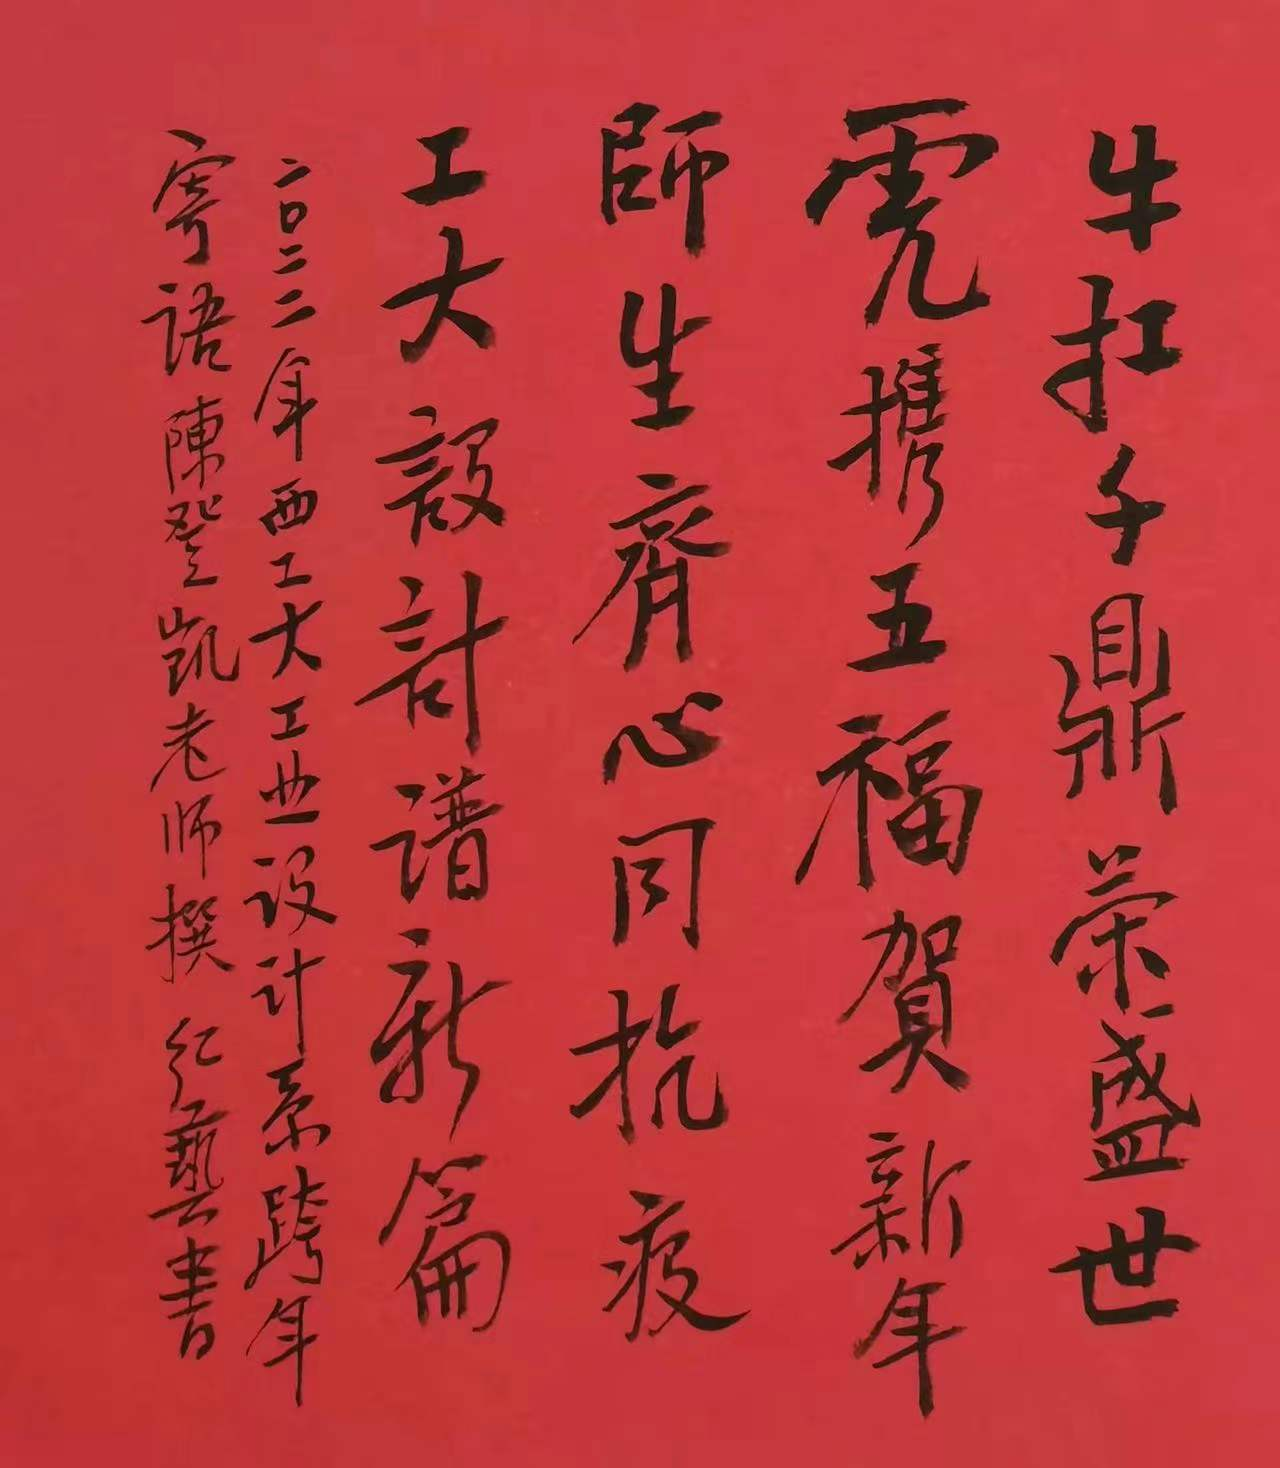 牛扛千鼎荣盛世
虎携五福賀新年
師生齊心同抗疫
工大設計譜新篇
二〇二二年西工大工业设计系跨年
寄语陳登凯老师撰红藝書